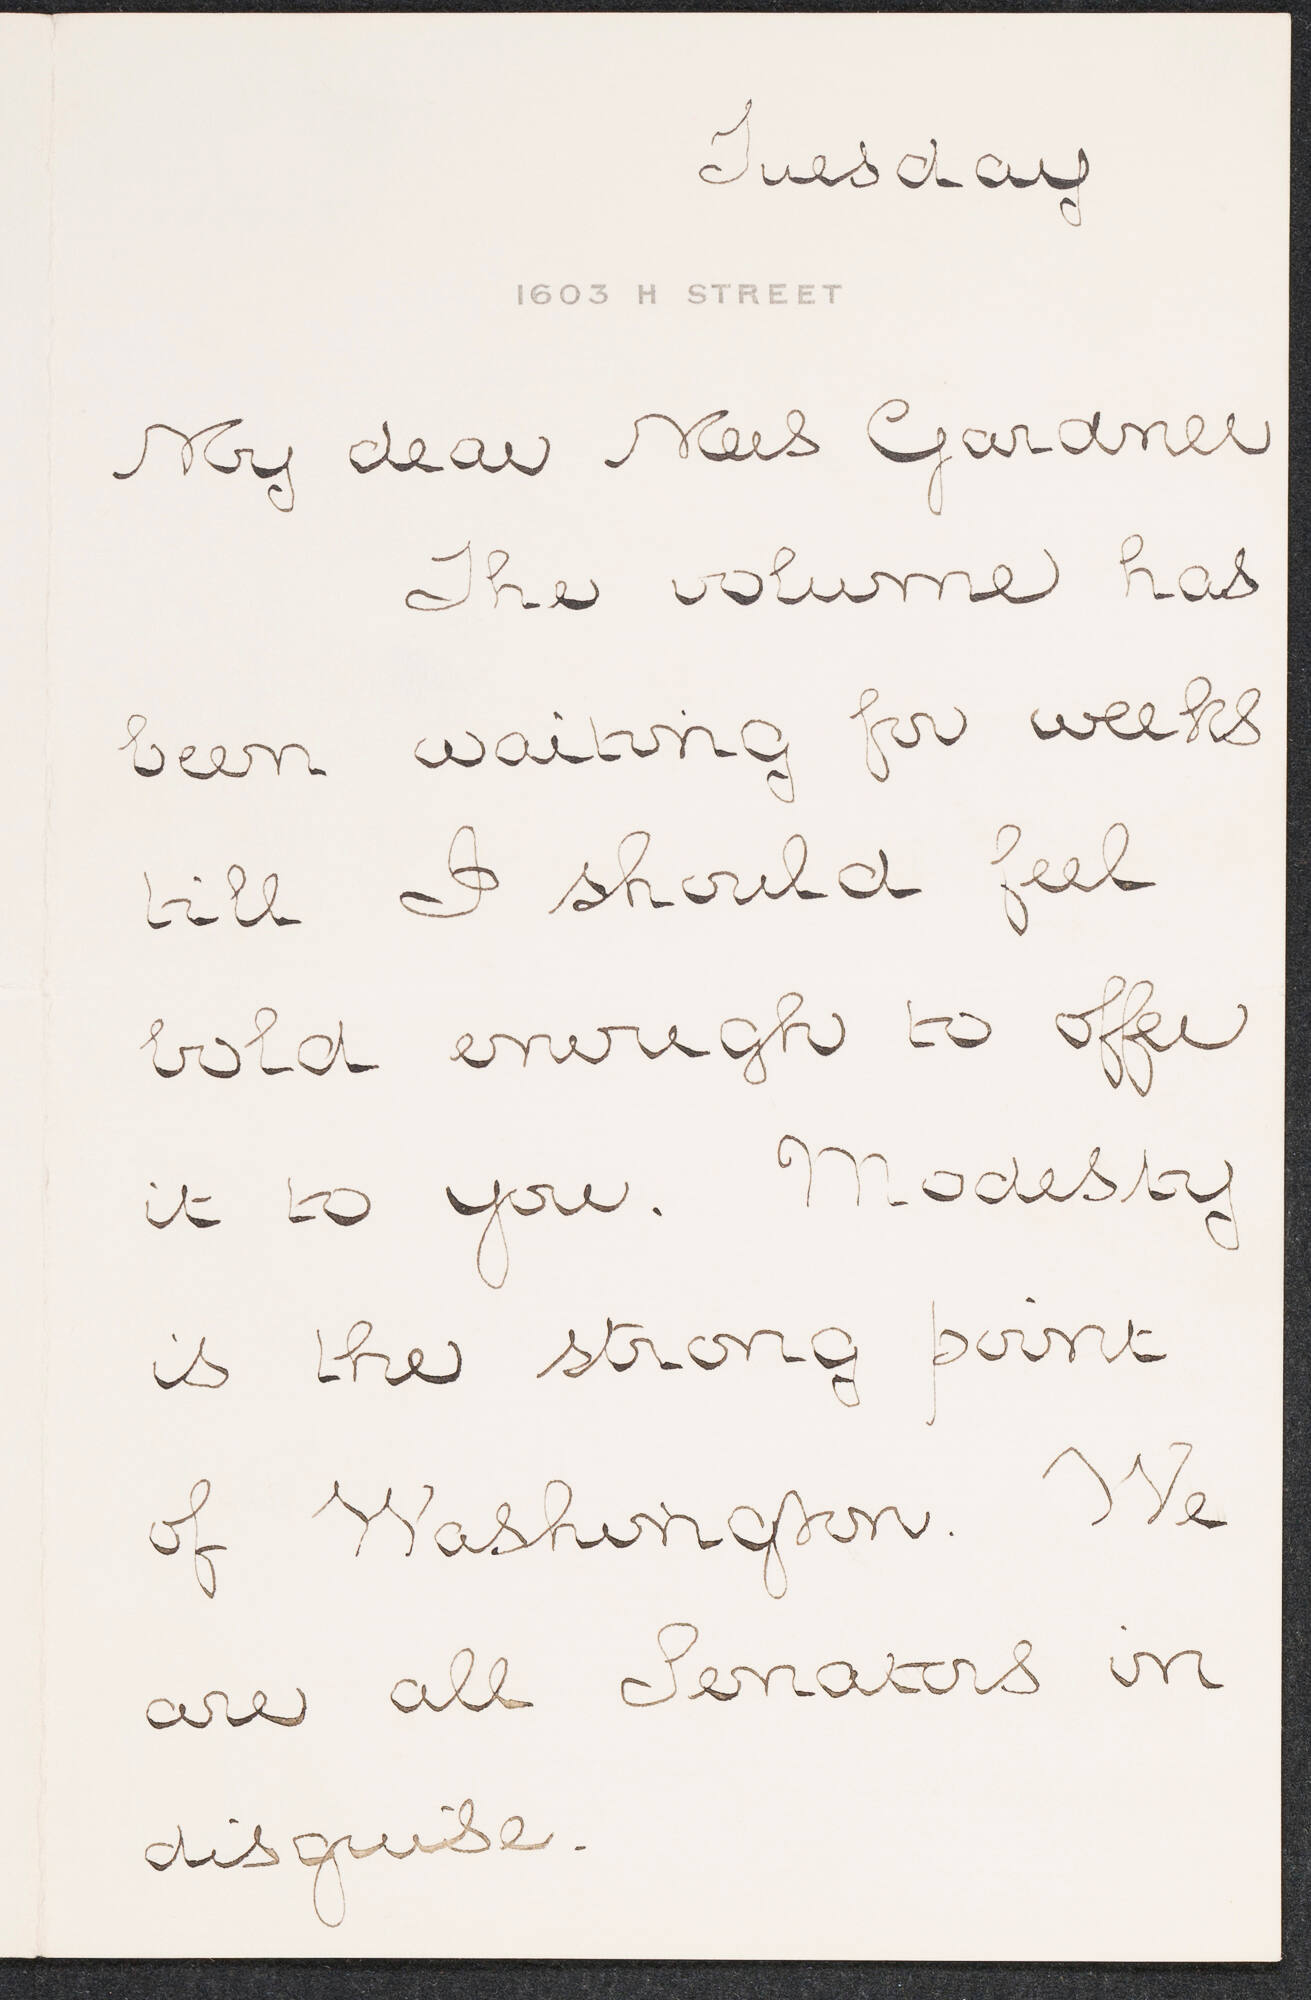 Tuesday
1603 H STREET
My dear Mrs Gardner
The volume has
been waiting for weeks
till I should feel
bold enough to offer
it to you. Modesty
is the strong point
of Washington. We
are all Senators in
disguise.